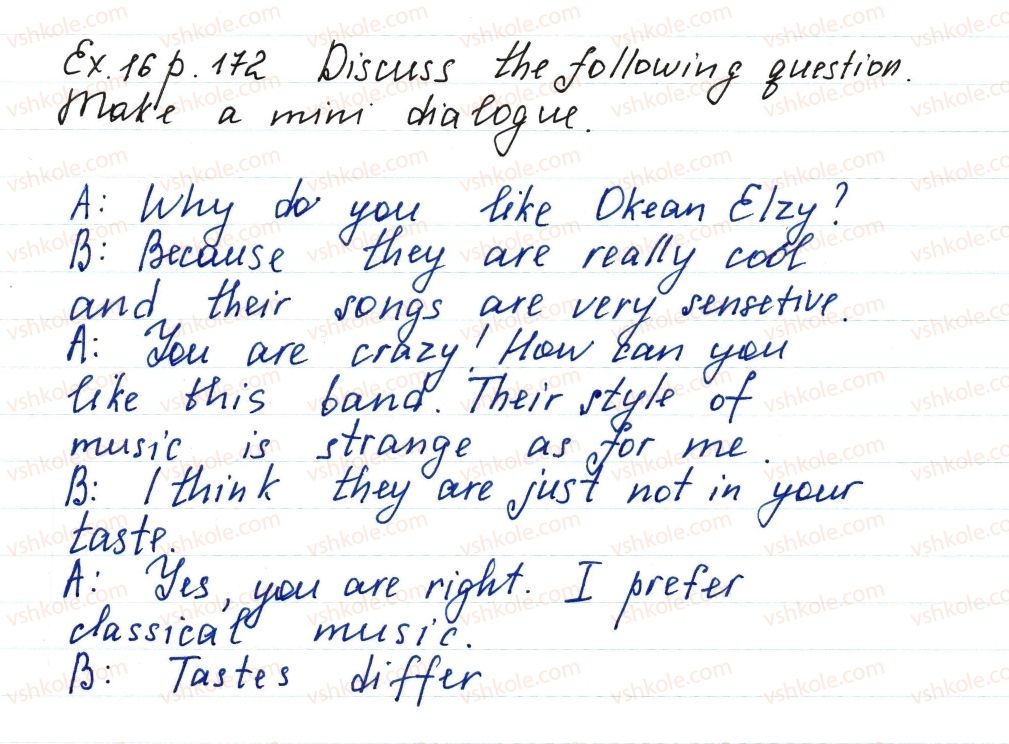 Ex. 16 p. 172 Discuss the following question.
Make a mini dialogue.
A: Why do you like Okean Elzy?
B: Because they are really cool
and their songs are very sensetive.
A: You are crazy! How can you
like this band. Their style of
music is strange as for me.
B: I think they are just not in your
taste.
A: Yes, you are right. I prefer
classical music.
B: Tastes differ